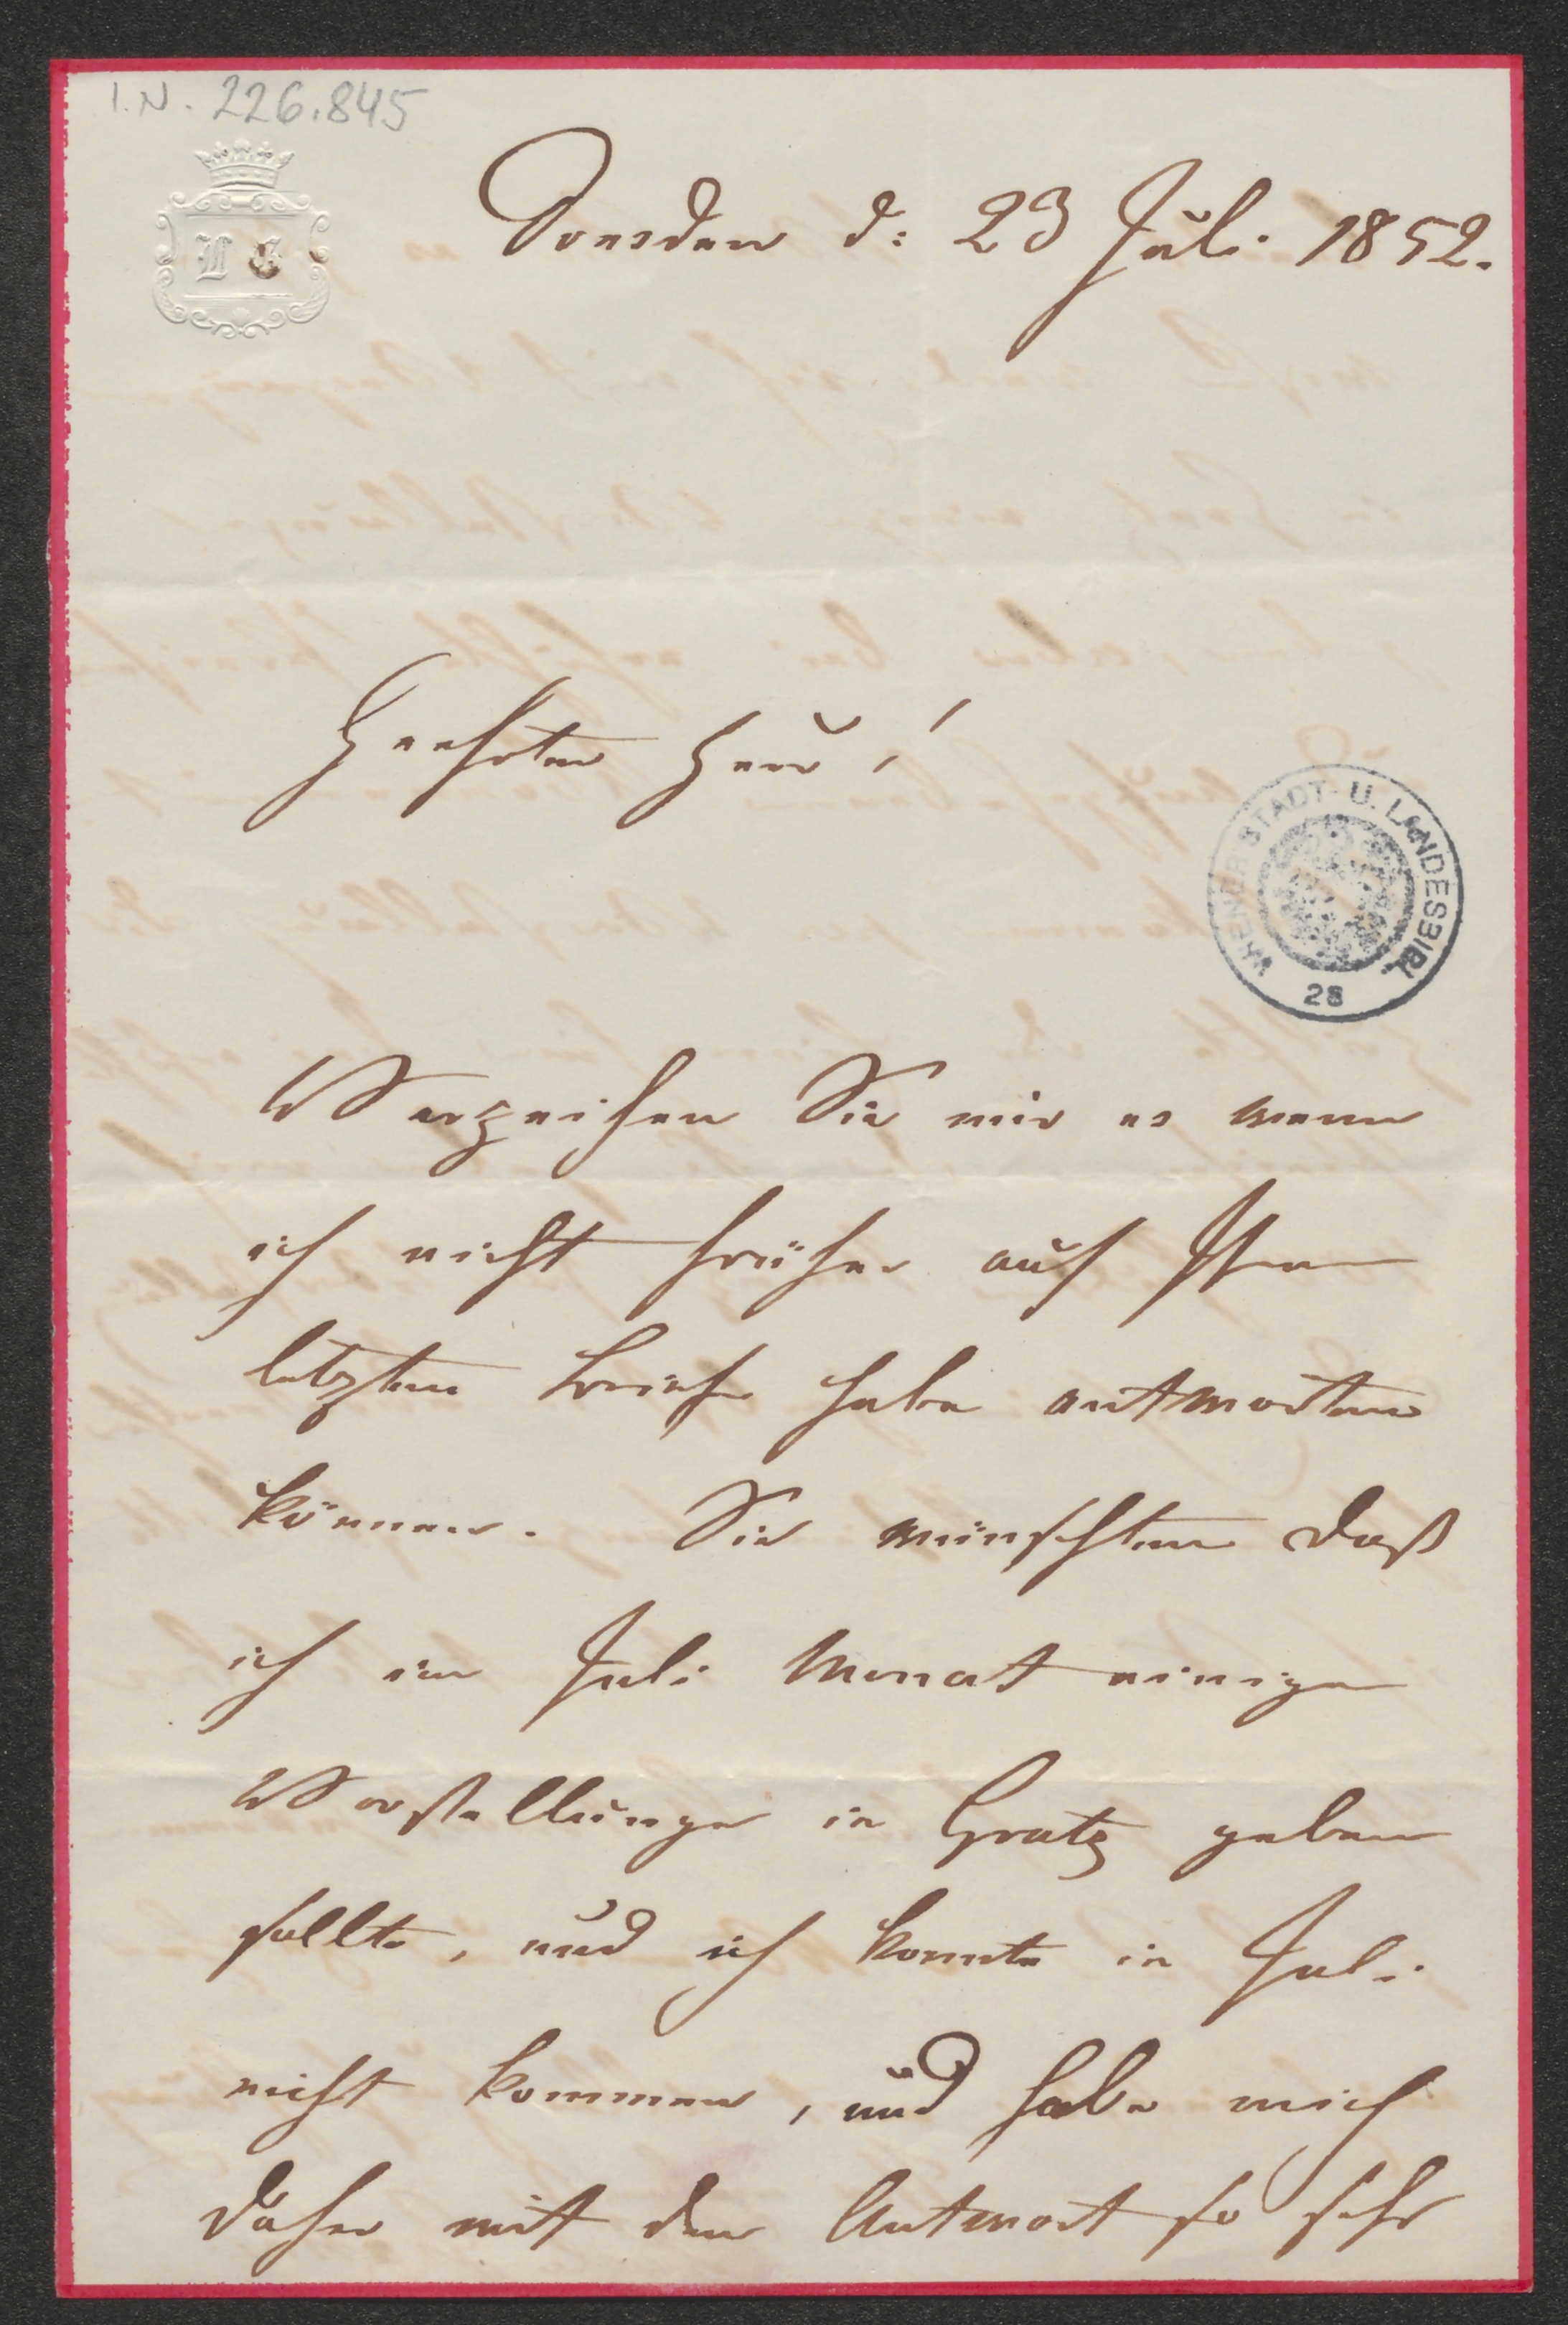 I.N. 226.845
Dresden d: 23 Juli 1852.
L G
Geehrter Herr!
WIENER STADT- U. LANDESBIBL.
28
Verzeihen Sie mir es wenn
ich nicht früher auf Ihren
letzten Brief habe antworten
können. Sie wünschten daß
ich im Juli Monat einige
Vorstellungen in Gratz geben
sollte, und ich konnte in Juli
nicht kommen, und habe mich
daher mit der Antwort so sehr